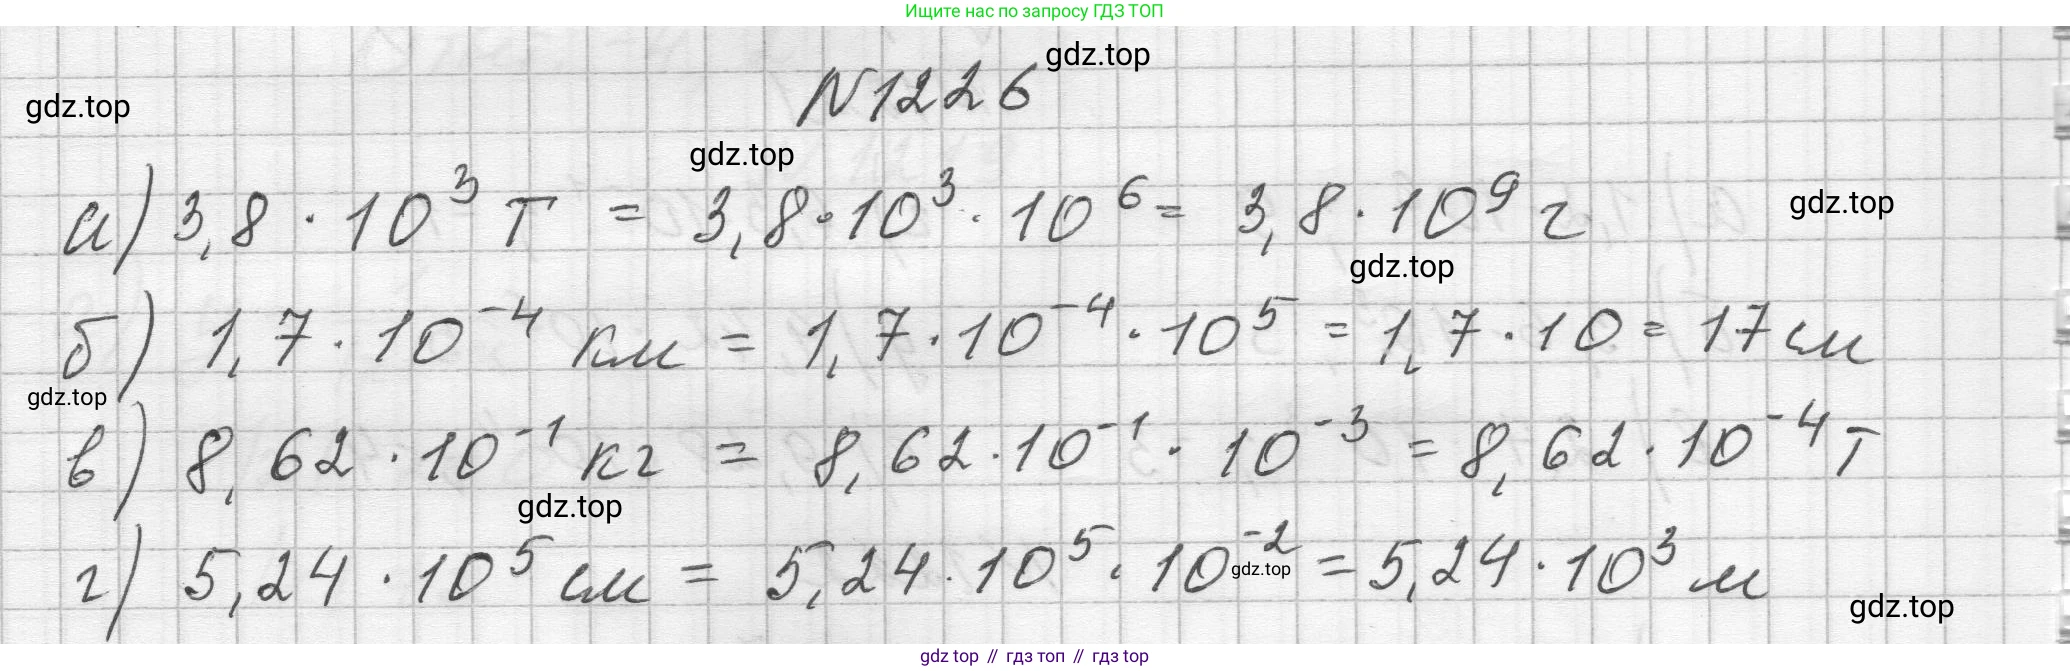 Ищите нас по запросу ГДЗ ТОП
gdz.top
N 1226
gdz.top
gdz.top
а) 3,8 · 10³ т = 3,8 · 10³ · 10⁶ = 3,8 · 10⁹ г
gdz.top
gdz.top
б) 1,7 · 10⁻⁴ км = 1,7 · 10⁻⁴ · 10⁵ = 1,7 · 10 = 17 см
gdz.top
в) 8,62 · 10⁻¹ кг = 8,62 · 10⁻¹ · 10⁻³ = 8,62 · 10⁻⁴ т
gdz.top
г) 5,24 · 10⁵ см = 5,24 · 10⁵ · 10⁻² = 5,24 · 10³ м
gdz.top
gdz.top
gdz top // гдз топ // гдз top